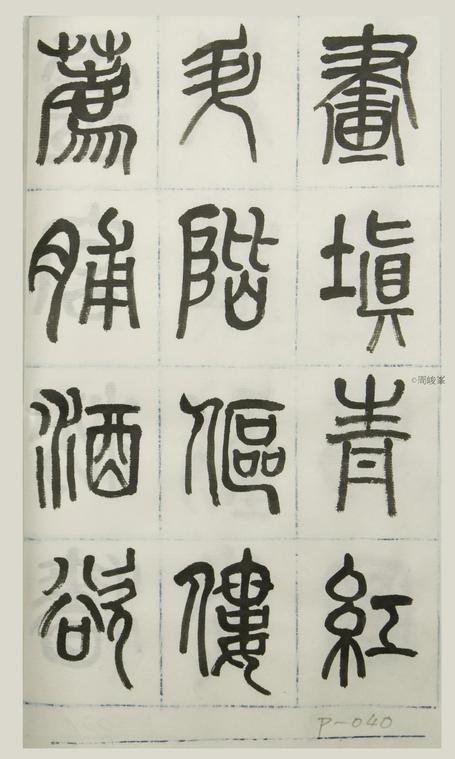 畫填青紅
升階傴僂
薦脯酒欲
©周峻峯
P-040